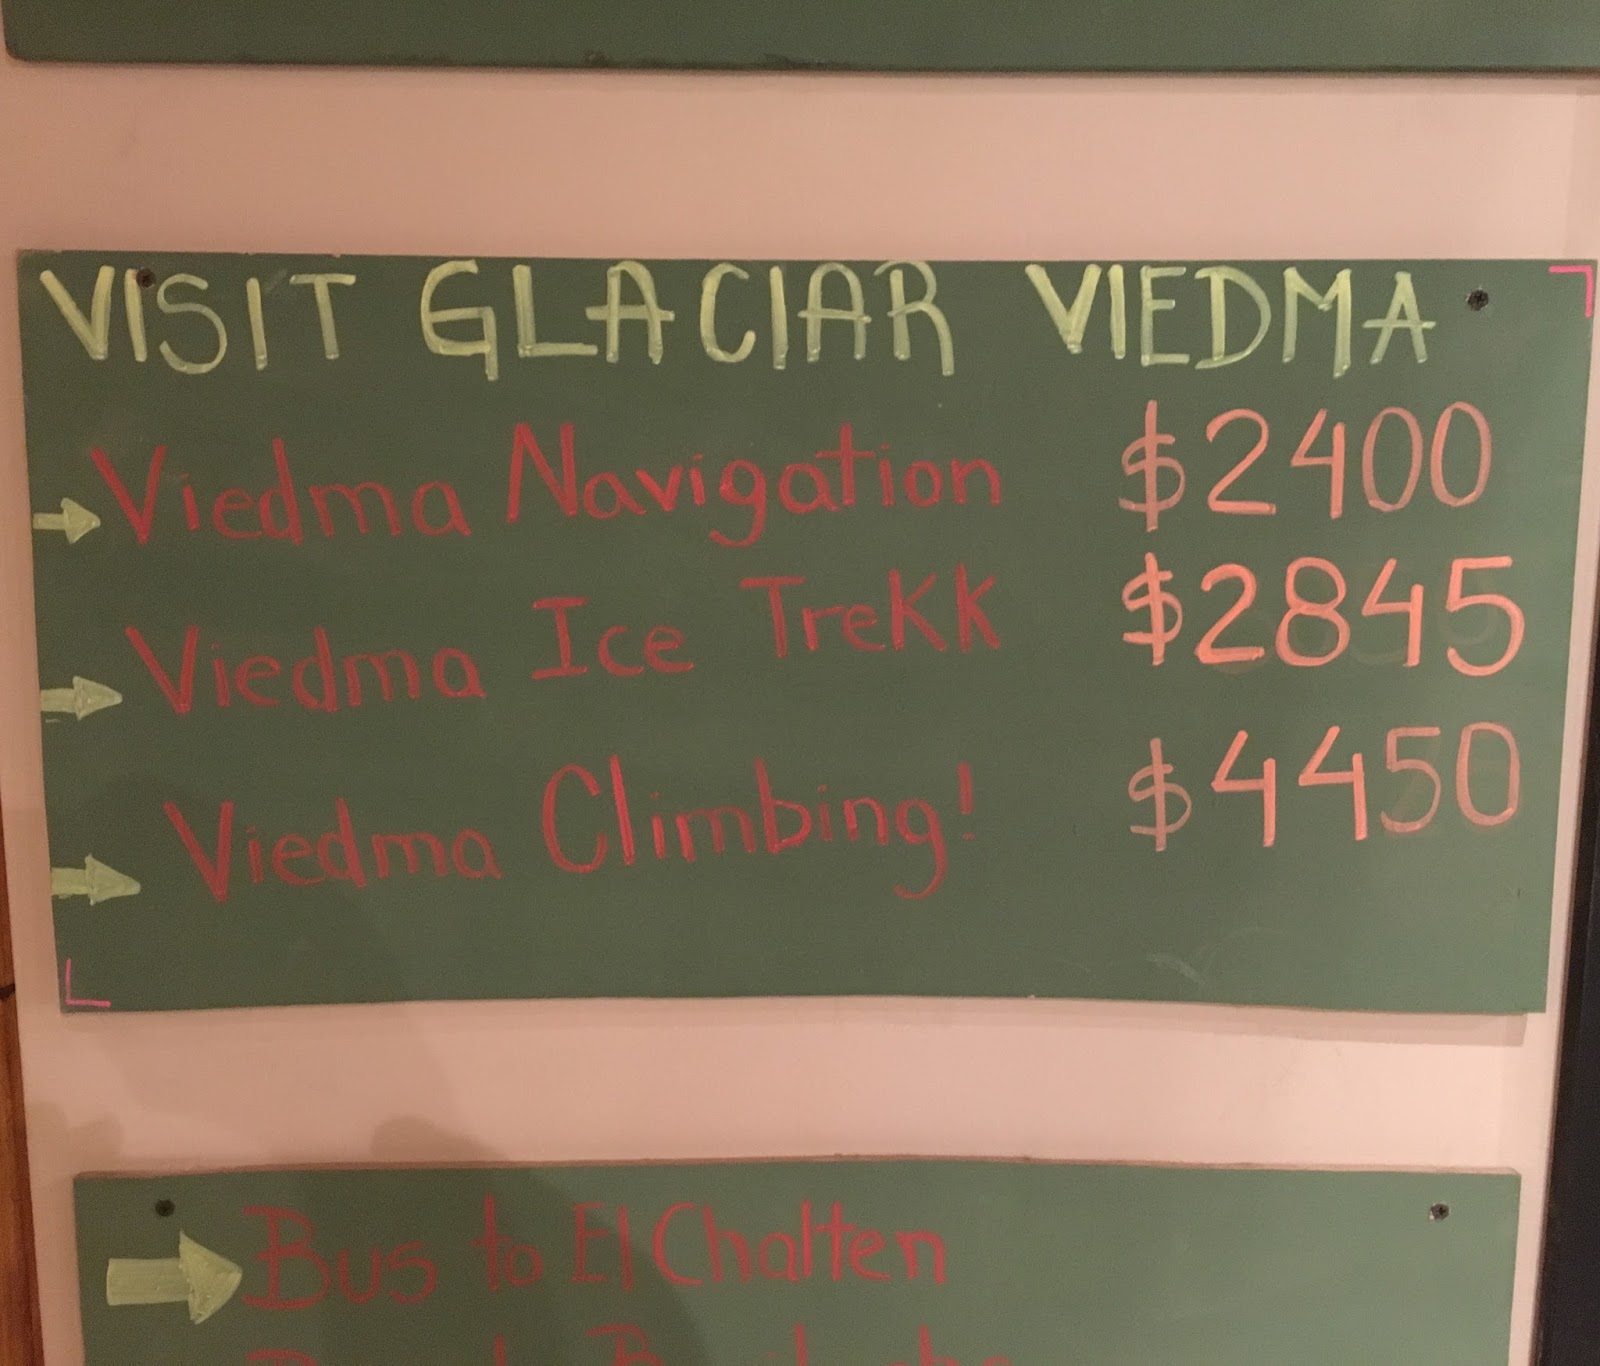 VISIT GLACIAR VIEDMA
Viedma Navigation $2400
Viedma Ice TreKK $2845
Viedma Climbing! $4450
Bus to El Chalten